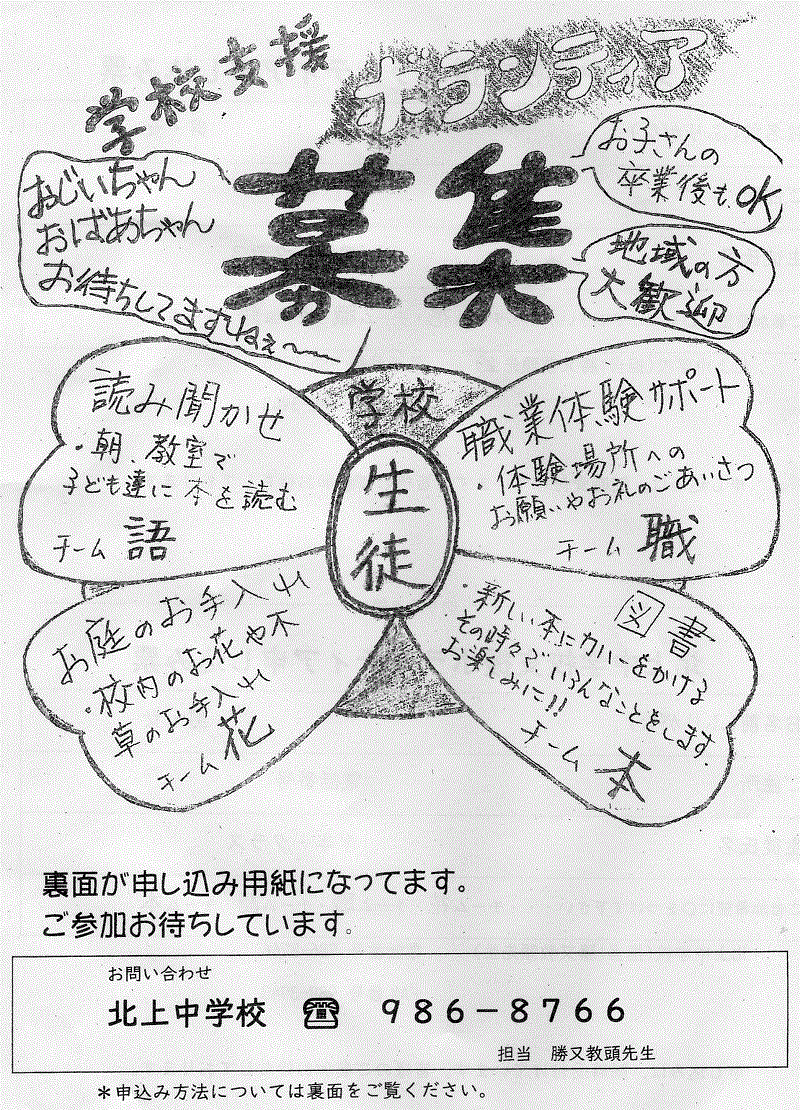 学校支援
ボランティア
募集
おじいちゃん
おばあちゃん
お待ちしてますねぇ〜
お子さんの
卒業後もOK
地域の方
大歓迎
学校
生徒
読み聞かせ
・朝、教室で
子ども達に本を読む
チーム 語
職業体験サポート
・体験場所への
お願いやお礼のごあいさつ
チーム 職
お庭のお手入れ
・校内のお花や木
草のお手入れ
チーム 花
図書
・新しい本にカバーをかける
その時々で、いろんなことをします。
お楽しみに!!
チーム 本
裏面が申し込み用紙になってます。
ご参加お待ちしています。
お問い合わせ
北上中学校 ☎ 986−8766
担当 勝又教頭先生
＊申込み方法については裏面をご覧ください。